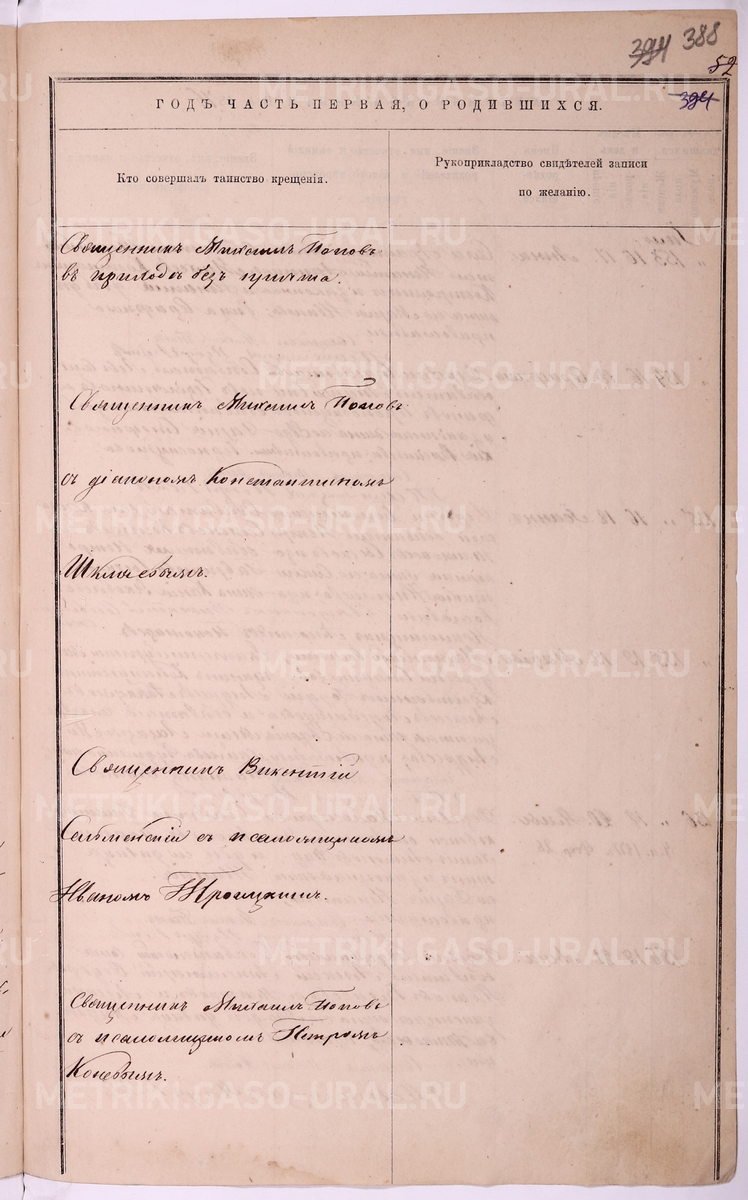 394 388
52
394
ГОДЪ ЧАСТЬ ПЕРВАЯ, О РОДИВШИХСЯ.
Кто совершалъ таинство крещенія.
Рукоприкладство свидѣтелей записи
по желанію.
Священникъ Михаилъ Поповъ
въ приходѣ безъ причта.
Священникъ Михаилъ Поповъ
съ діакономъ Константиномъ
Шкляевымъ.
Священникъ Викентій
Сельменскій съ псаломщикомъ
Иваномъ
Священникъ Михаилъ Поповъ
съ псаломщикомъ Петромъ
Коневымъ.
METRIKI.GASO-URAL.RU